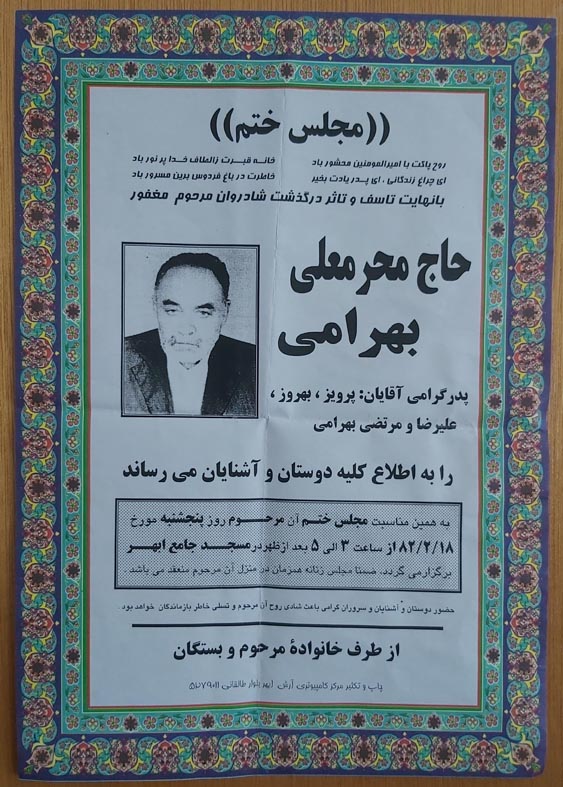 ((مجلس ختم))
روح پاکت با امیرالمومنین محشور باد
خانه قبرت زالطاف خدا پر نور باد
ای چراغ زندگانی ، ای پدر یادت بخیر
خاطرت در باغ فردوس برین مسرور باد
بانهایت تاسف و تاثر درگذشت شادروان مرحوم مغفور
حاج محرمعلی
بهرامی
پدرگرامی آقایان: پرویز ، بهروز ،
علیرضا و مرتضی بهرامی
را به اطلاع کلیه دوستان و آشنایان می رساند
به همین مناسبت مجلس ختم آن مرحوم روز پنجشنبه مورخ
۸۲/۲/۱۸ از ساعت ۳ الی ۵ بعد ازظهر در مسجد جامع ابهر
برگزارمی گردد. ضمنا مجلس زنانه همزمان در منزل آن مرحوم منعقد می باشد .
حضور دوستان و آشنایان و سروران گرامی باعث شادی روح آن مرحوم و تسلی خاطر بازماندگان خواهد بود .
از طرف خانوادهٔ مرحوم و بستگان
چاپ و تکثیر مرکز کامپیوتری آرش ابهر بلوار طالقانی ۵۲۷۹۰۱۱